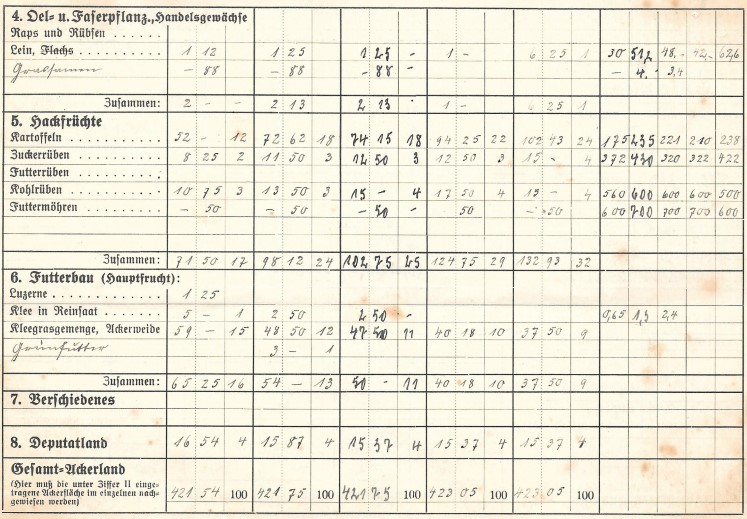 4. Oel- u. Faserpflanz., Handelsgewächse
Raps und Rübsen . . . . . .
Lein, Flachs . . . . . . . . . 1 12 1 25 1 25 - 1 - 6 25 1 30 48.- 42.- 62,6
Grassamen - 88 - 88 - 88 - - 4. 2,4
Zusammen: 2 - - 2 13 2 13 1 - 6 25 1
5. Hackfrüchte
Kartoffeln . . . . . . . . . . 52 - 12 72 62 18 74 15 18 94 25 22 102 43 24 175 235 221 210 238
Zuckerrüben . . . . . . . . 8 25 2 11 50 3 12 50 3 12 50 3 15 - 4 372 430 320 322 422
Futterrüben . . . . . . . .
Kohlrüben . . . . . . . . . 10 75 3 13 50 3 15 - 4 17 50 4 15 - 4 560 600 600 600 500
Futtermöhren . . . . . . . - 50 - 50 - 50 - 50 - 50 600 700 700 700 600
Zusammen: 71 50 17 98 12 24 102 75 25 124 75 29 132 93 32
6. Futterbau (Hauptfrucht):
Luzerne . . . . . . . . . . . . 1 25
Klee in Reinsaat . . . . . 5 - 1 2 50 2 50 - 0,65 1,3 2,4
Kleegrasgemenge, Ackerweide 59 - 15 48 50 12 47 50 11 40 18 10 37 50 9
Grünfutter 3 - 1
Zusammen: 65 25 16 54 - 13 50 - 11 40 18 10 37 50 9
7. Verschiedenes
8. Deputatland 16 54 4 15 87 4 15 37 4 15 37 4 15 37 4
Gesamt-Ackerland
(Hier muß die unter Ziffer II einge-
tragene Ackerfläche im einzelnen nach- 421 54 100 421 75 100 421 75 100 423 05 100 423 05 100
gewiesen werden)